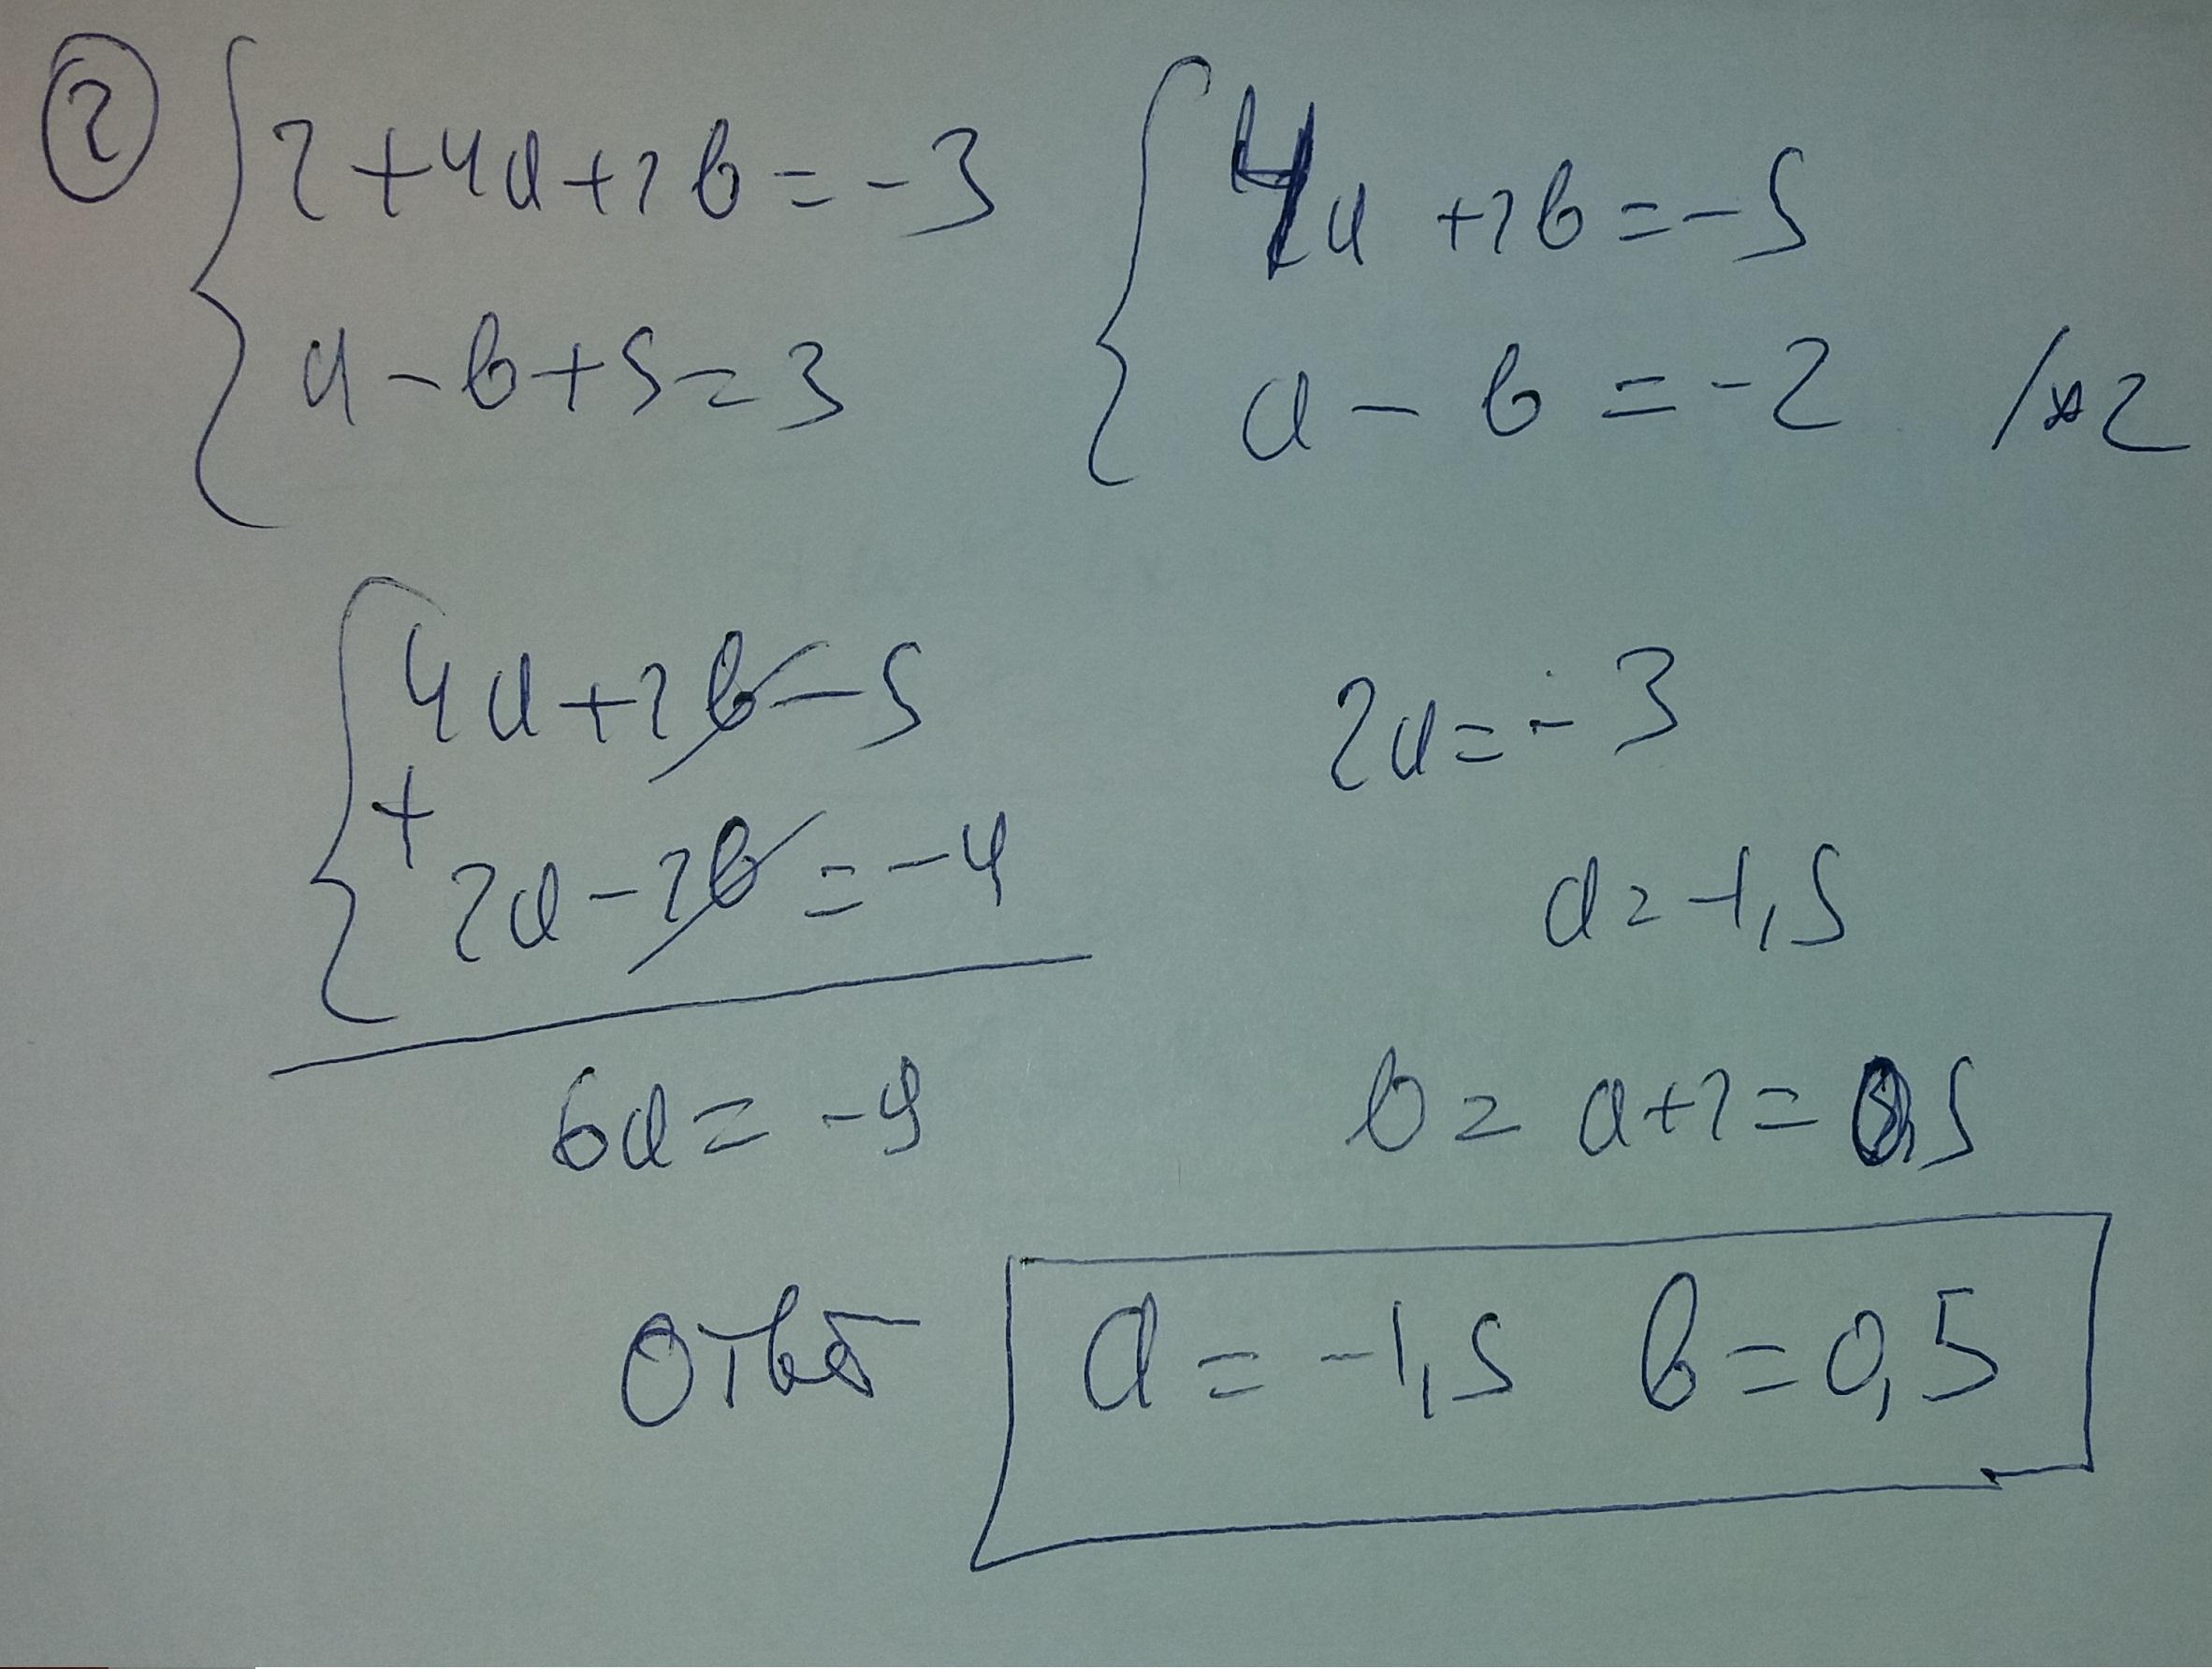 2
2+4a+2b=-3
a-b+5=3
4a+2b=-5
a-b=-2 /*2
4a+2b-5
+
2a-2b=-4
6a=-9
2a=-3
a=-1,5
b=a+2=0,5
ответ a=-1,5 b=0,5